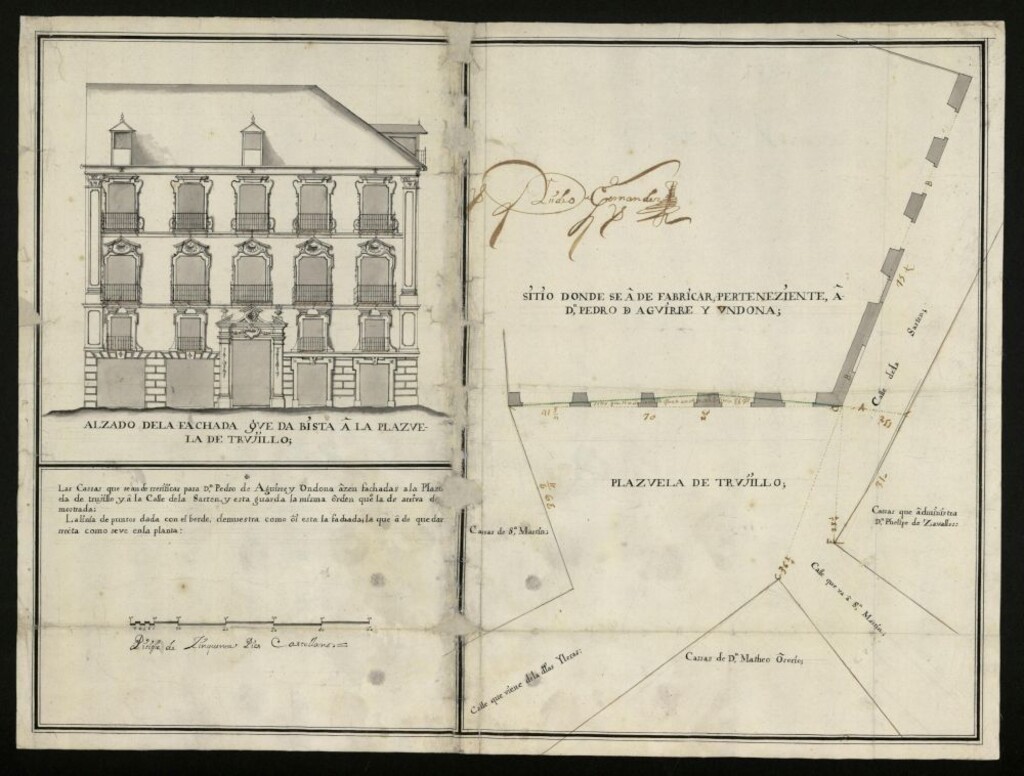 ALZADO DELA FACHADA QVE DA BISTA Â LA PLAZVE-
LA DE TRVJILLO;
Las Cassas que para Dn. Pedro de Aguirre y Ondona âzen fachadas a la Plazu
ela de trujillo, y â la Calle dela Sarten, y esta guarda la misma ôrden que la de arriva de
mostrada;
La linia de puntos dada con el berde, demuestra como ôi esta la fachada; la que â de quedar
recita como se ve en la planta:
Pitipie de Castellanos
Pedro Hernandez
SITIO DONDE SE Â DE FABRICAR, PERTENEZIENTE, Â
Dn. PEDRO D AGVIRRE Y VNDONA;
Calle dela Sarten;
PLAZVELA DE TRVJILLO;
70
Cassas de Sn. Martin;
Cassas que âdministra
Dn. Phelipe de Zavallos:
Calle que va â Sn. Martin;
Cassas de Dn. Matheo
Calle que viene dela